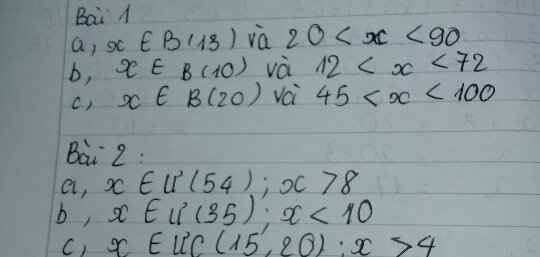 Bài 1
a, x ∈ B(13) và 20 < x < 90
b, x ∈ B(10) và 12 < x < 72
c, x ∈ B(20) và 45 < x < 100
Bài 2 :
a, x ∈ Ư(54) ; x > 8
b, x ∈ Ư(35) ; x < 10
c, x ∈ ƯC(15, 20) ; x > 4